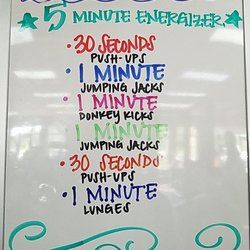 5 MINUTE ENERGIZER
• 30 SECONDS
PUSH-UPS
• 1 MINUTE
JUMPING JACKS
• 1 MINUTE
DONKEY KICKS
• 1 MINUTE
JUMPING JACKS
• 30 SECONDS
PUSH-UPS
• 1 MINUTE
LUNGES